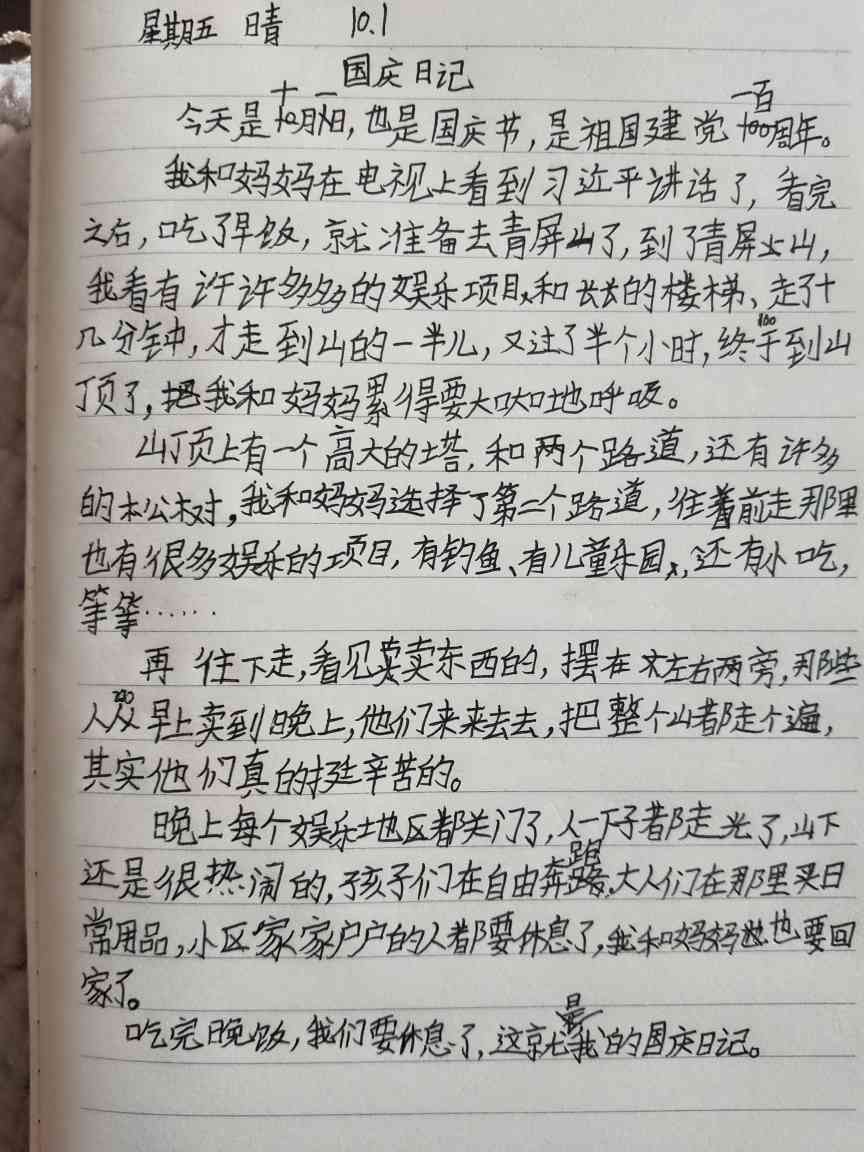 星期五 晴 10.1
国庆日记
今天是十月一日,也是国庆节,是祖国建党一百周年。
我和妈妈在电视上看到习近平讲话了,看完
之后,吃了早饭,就准备去青屏山了,到了青屏山,
我看有许许多多的娱乐项目,和长长的楼梯、走了十
几分钟,才走到山的一半儿,又过了半个小时,终于到山
顶了,把我和妈妈累得要大口大口地呼吸。
山顶上有一个高大的塔,和两个路道,还有许多
的松树,我和妈妈选择了第二个路道,往着前走那里
也有很多娱乐的项目,有钓鱼、有儿童乐园,还有小吃,
等等······
再往下走,看见卖东西的,摆在左右两旁,那些
人从早上卖到晚上,他们来来去去,把整个山都走个遍,
其实他们真的挺辛苦的。
晚上每个娱乐地区都关门了,人一下子都走光了,山下
还是很热闹的,孩子们在自由奔跑,大人们在那里买日
常用品,小区家家户户的人都要休息了,我和妈妈也要回
家了。
吃完晚饭,我们要休息了,这就是我的国庆日记。